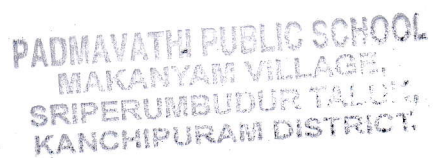 PADMAVATHI PUBLIC SCHOOL
MAKANYAM VILLAGE,
SRIPERUMBUDUR TALUK,
KANCHIPURAM DISTRICT.